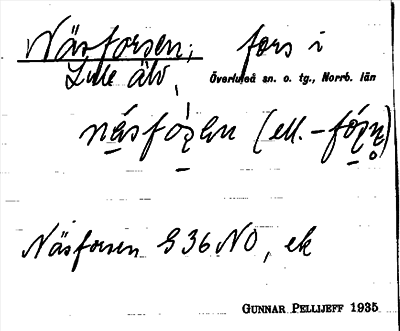 Näsforsen; fors i
Lule älv, Överluleå sn. o. tg., Norrb. län
Näsforsen S 36 NO, ek
GUNNAR PELLIJEFF 1935